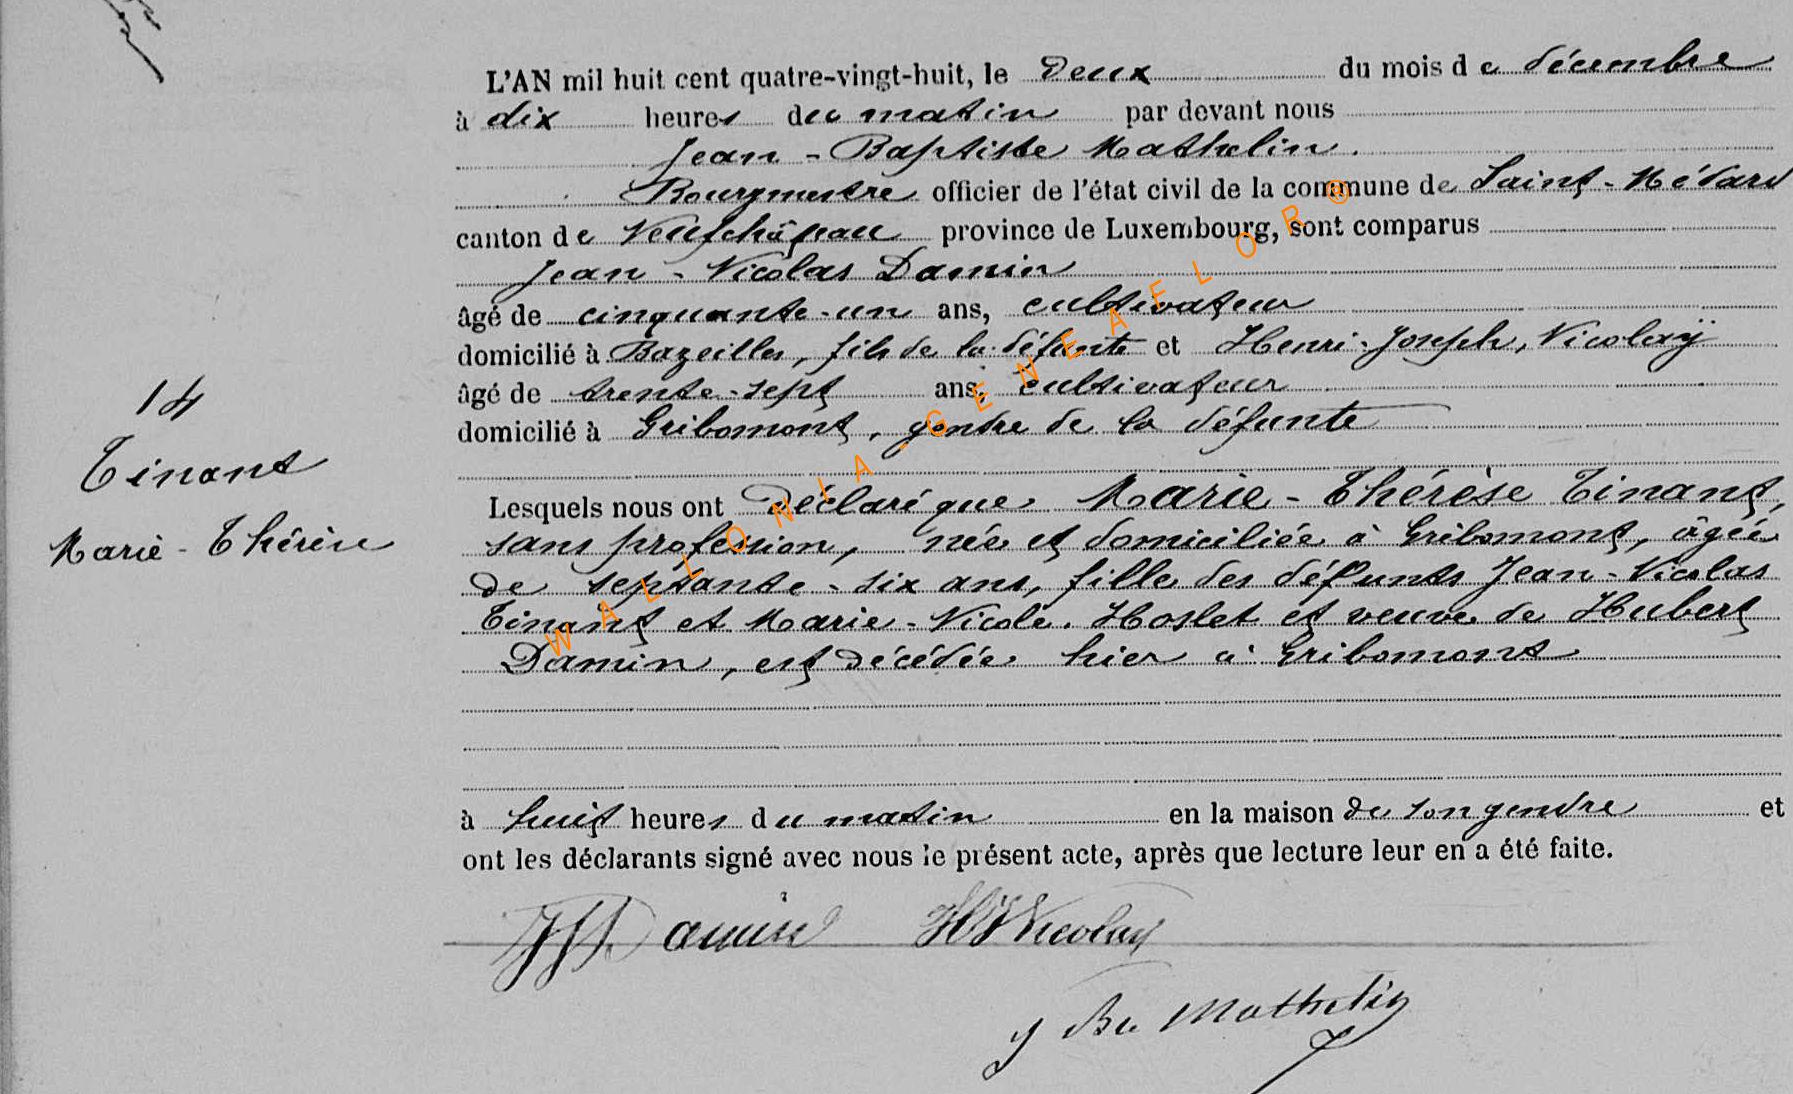 L'AN mil huit cent quatre-vingt-huit, le Deux du mois de décembre
à dix heures du matin par devant nous
Jean-Baptiste Mathelin.
Bourgmestre officier de l'état civil de la commune de Saint-Médard
canton de Neufchâteau province de Luxembourg, sont comparus
Jean-Nicolas Damin
âgé de cinquante-un ans, cultivateur
domicilié à Bazeilles, fils de la défunte et Henri-Joseph, Nicolaÿ
âgé de trente-sept ans, cultivateur
domicilié à Gribomont, gendre de la défunte
14
Tinant
Marie-Thérèse
Lesquels nous ont Déclaré que Marie-Thérèse Tinant,
sans profession, née et domiciliée à Gribomont, âgée
de septante-six ans, fille des défunts Jean-Nicolas
Tinant et Marie-Nicole. Hoslet et veuve de Hubert
Damin, est décédée hier à Gribomont
à huit heures du matin en la maison de son gendre et
ont les déclarants signé avec nous le présent acte, après que lecture leur en a été faite.
JN Damin HJ Nicolay
J Bte Mathelin
WALLONIA-GENEAELOR®